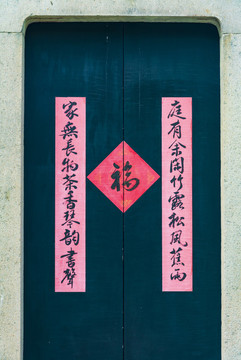 庭有余闲竹露松风蕉雨
福
家無長物茶香琴韵書聲